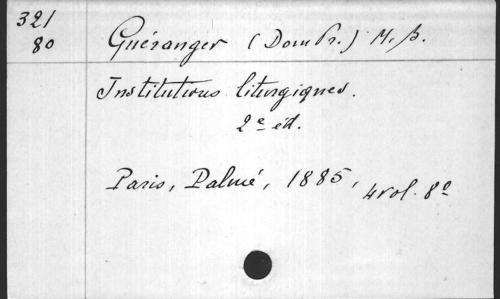 321
80
Guéranger (Dom Pr.) M. B.
Institutions liturgiques.
2e éd.
Paris, Palmé, 1885, 4 vol. 8º